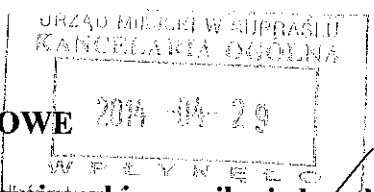 URZĄD MIEJSKI W SUPRAŚLU
KANCELARIA OGÓLNA
2014 -04- 29
OWE
WPŁYNĘŁO